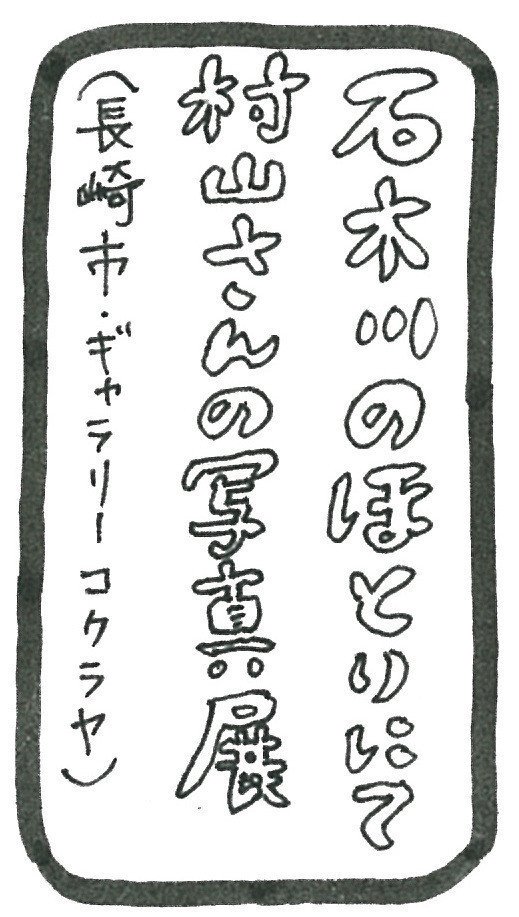 石木川のほとりにて
村山さんの写真展
(長崎市・ギャラリーコクラヤ)